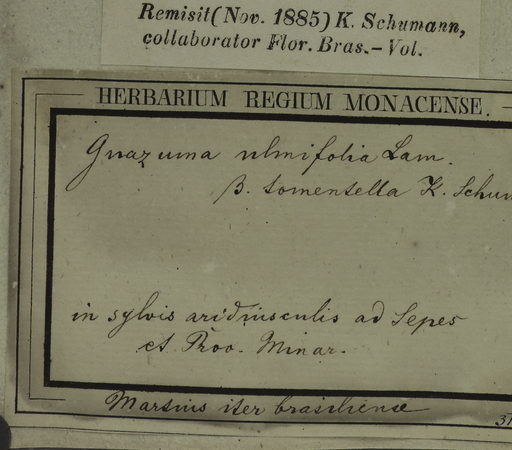 Remisit (Nov. 1885) K. Schumann,
collaborator Flor. Bras. – Vol.
HERBARIUM REGIUM MONACENSE.
Guazuma ulmifolia Lam.
β. tomentella K. Schum
in sylvis aridiusculis ad Sepes
et Prov. Minar.
Martius iter brasiliense